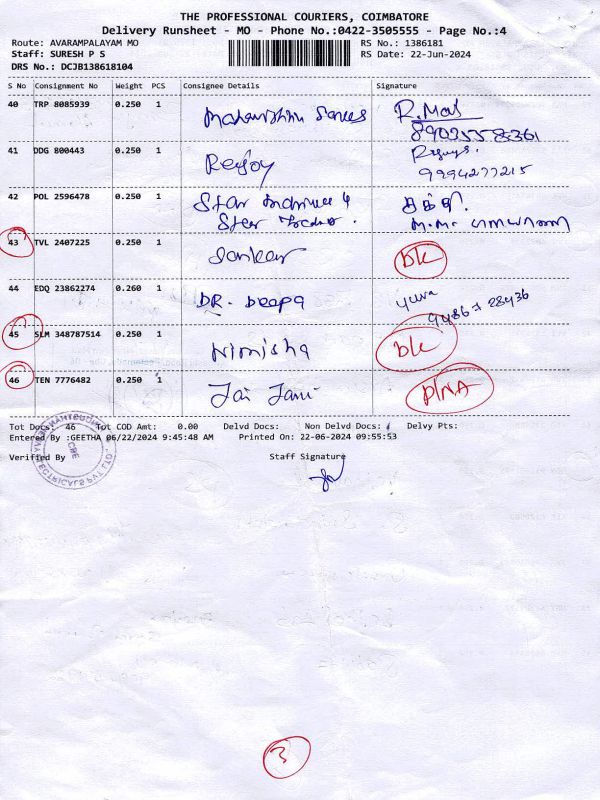 THE PROFESSIONAL COURIERS, COIMBATORE
Delivery Runsheet - MO - Phone No.:0422-3505555 - Page No.:4
Route: AVARAMPALAYAM MO RS No.: 1386181
Staff: SURESH P S RS Date: 22-Jun-2024
DRS No.: DCJB138618104
S No Consignment No Weight PCS Consignee Details Signature
40 TRP 8085939 0.250 1 R.Mal
8902558361
41 DDG 800443 0.250 1 Rejoy
9994277215
42 POL 2596478 0.250 1 Star &
Star
43 TVL 2407225 0.250 1 Sankar DLC
44 EDQ 23862274 0.260 1 DR. Deepa yuva
45 SLM 348787514 0.250 1 Nimisha DLC
46 TEN 7776482 0.250 1 Jai P/NA
Tot Docs: 46 Tot COD Amt: 0.00 Delvd Docs: Non Delvd Docs: Delvy Pts:
Entered By :GEETHA 06/22/2024 9:45:48 AM Printed On: 22-06-2024 09:55:53
Verified By Staff Signature
CBE
3